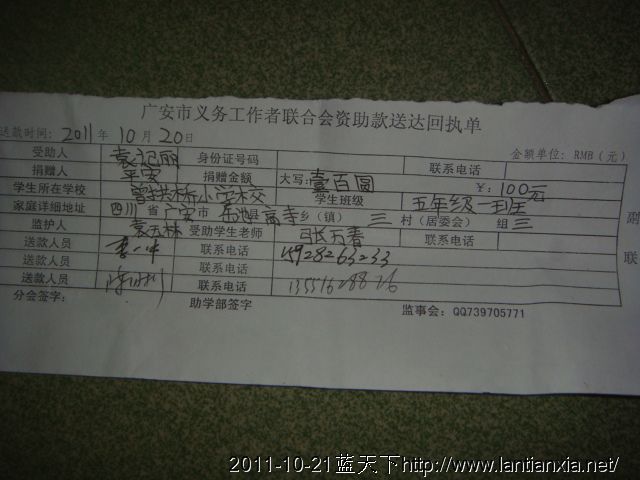 广安市义务工作者联合会资助款送达回执单
送款时间: 2011 年 10 月 20 日 金额单位: RMB（元）
受助人 袁 丽 身份证号码 联系电话
捐赠人 平安 捐赠金额 大写: 壹百圆 ￥: 100元
学生所在学校 小学校 学生班级 五年级一班
家庭详细地址 四川 省 广安 市 县 乡（镇） 三 村（居委会） 组 三
监护人 袁玉林 受助学生老师 张万春 联系电话
送款人员 联系电话 15928263233
送款人员 联系电话
送款人员 联系电话 13551628826
分会签字: 助学部签字 监事会: QQ739705771
副
联
2011-10-21蓝天下http://www.lantianxia.net/